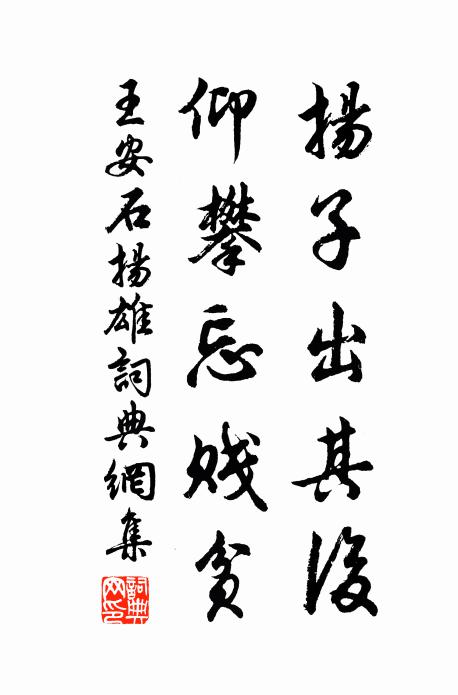 揚子出其後
仰攀忘賤貧
王安石揚雄詞典網集
詞典網印